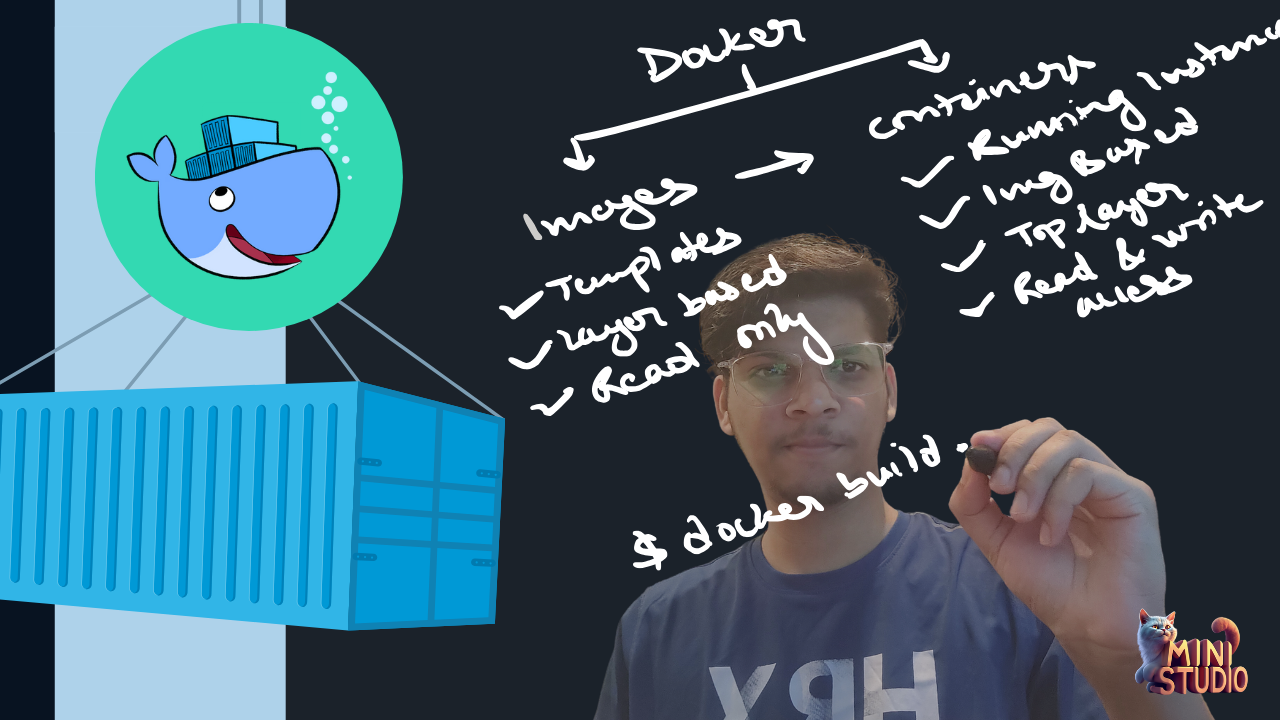 Docker
Images →
✓ Templates
✓ Layer based
✓ Read only
Containers
✓ Running Instanc
✓ Img Based
✓ Top layer
✓ Read & write
access
$ docker build .
HRX
MINI
STUDIO